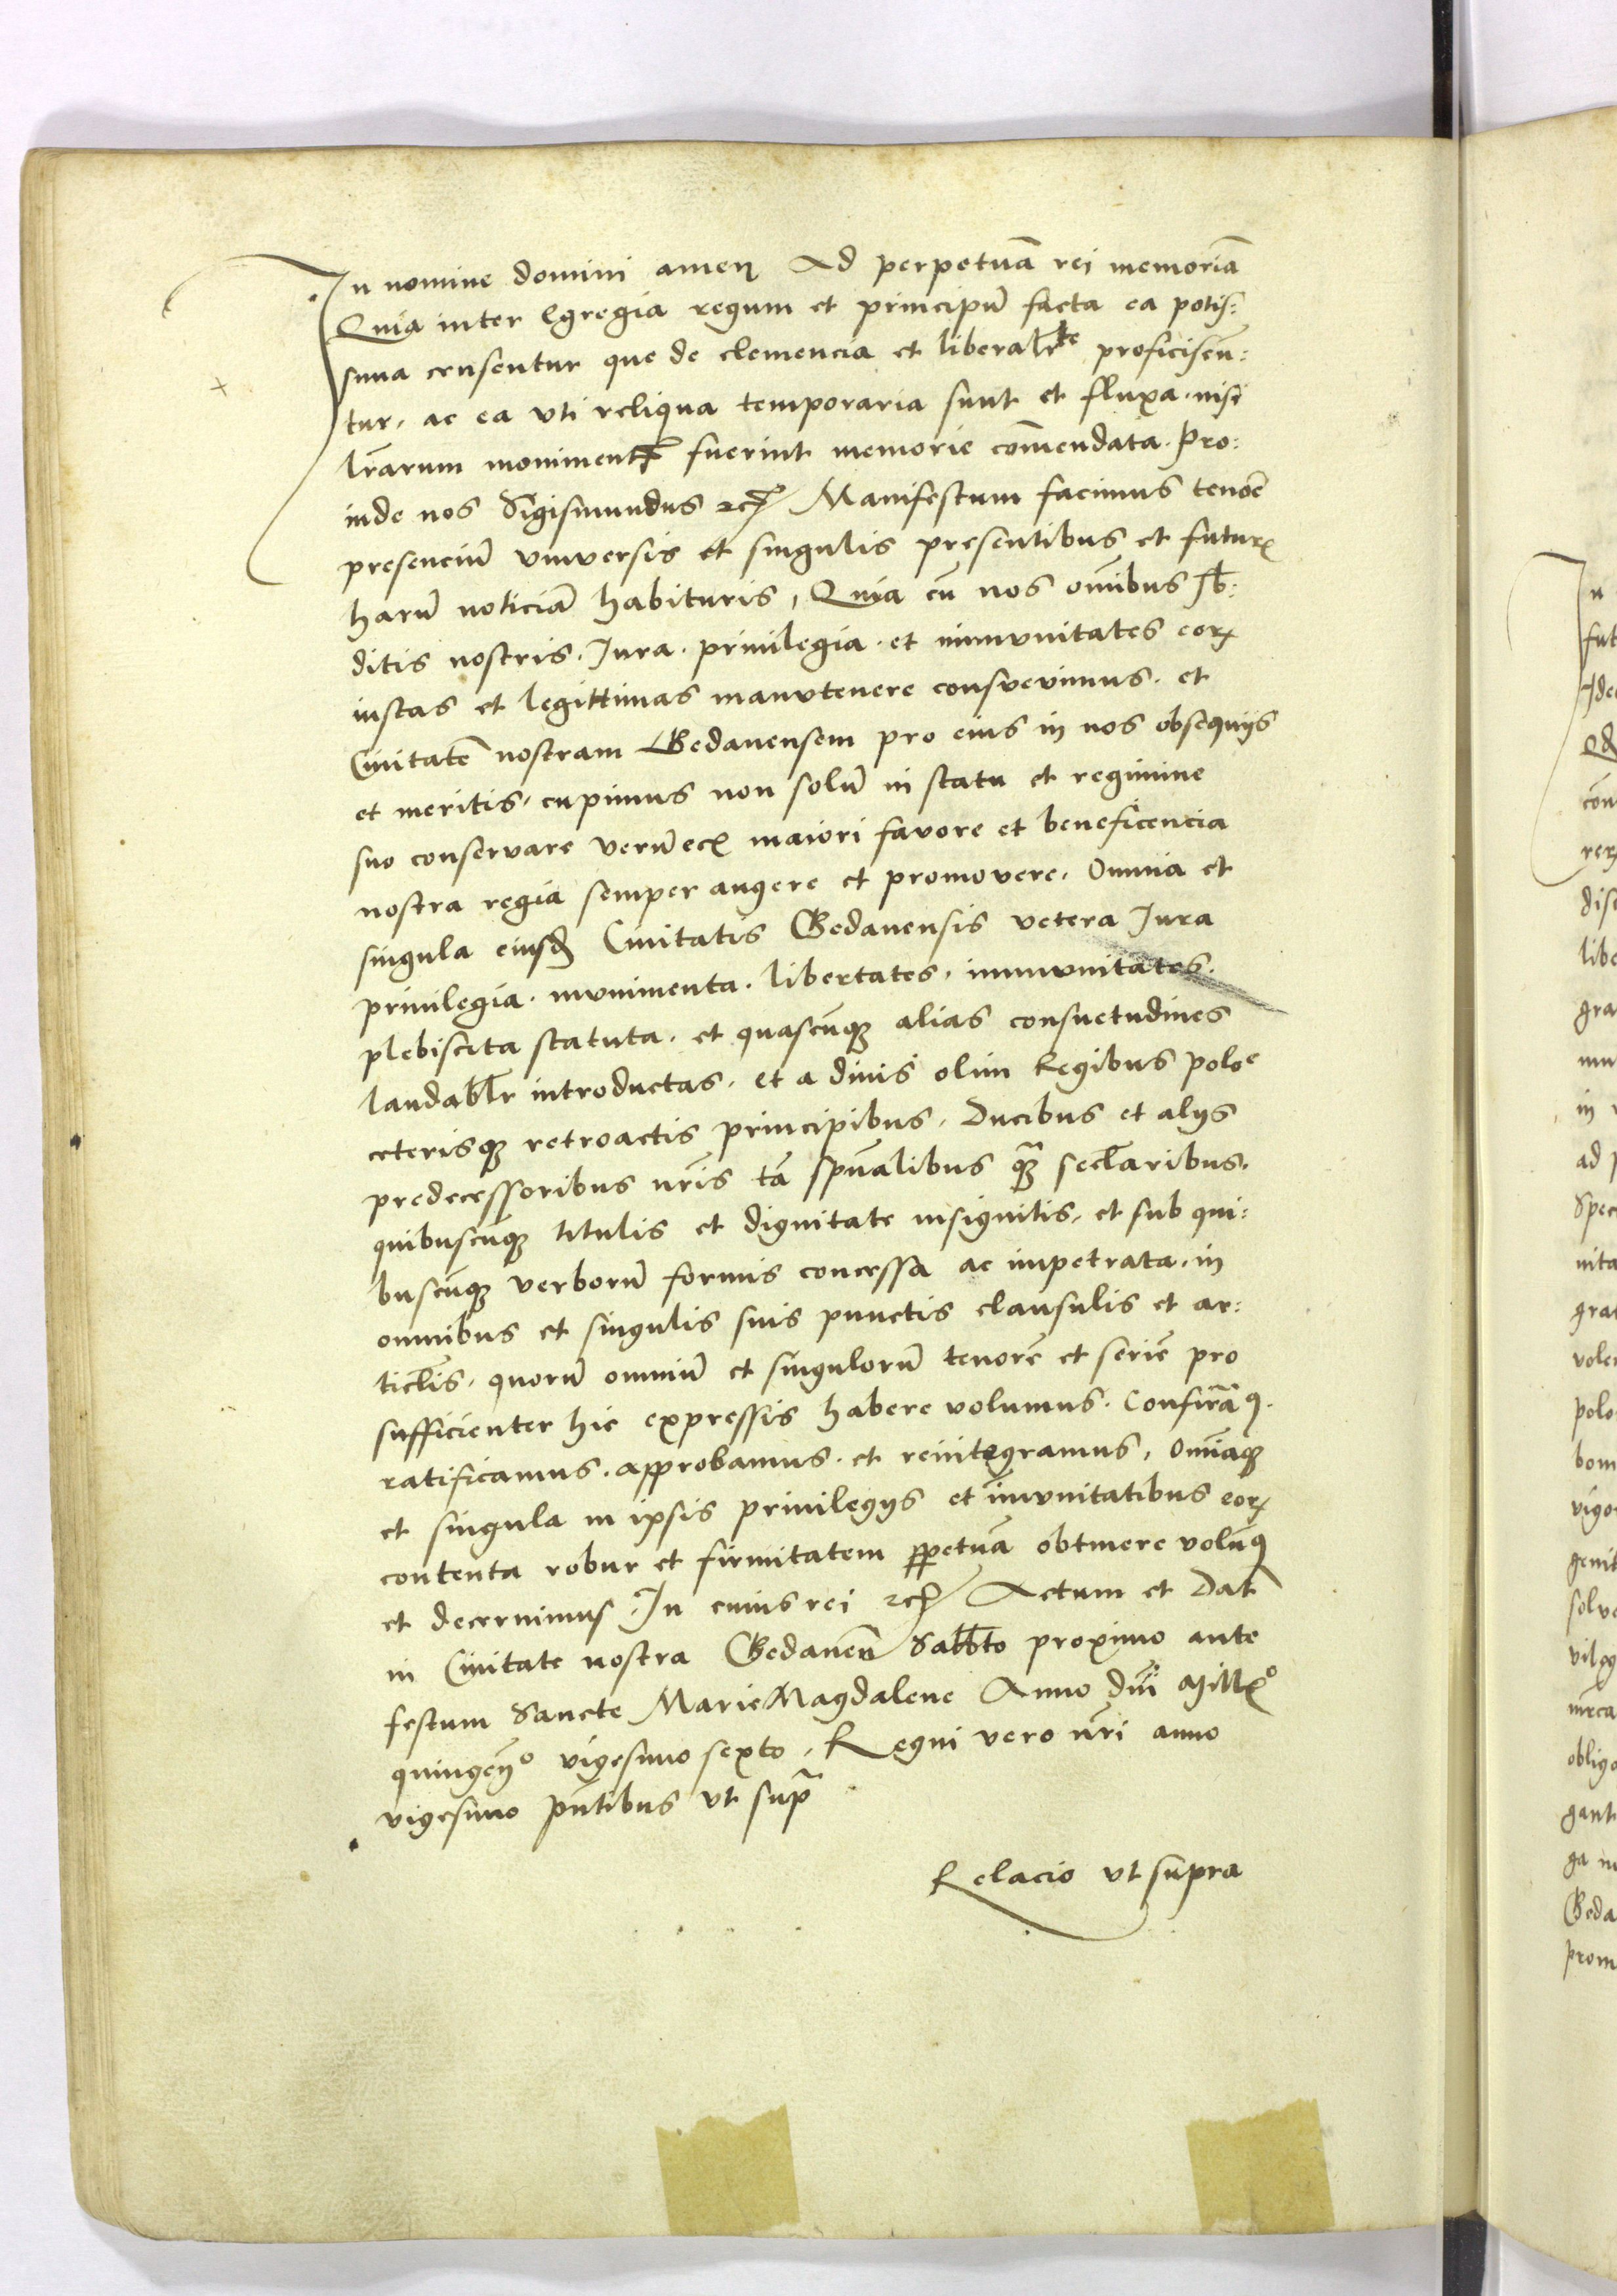 In nomine domini amen Ad perpetuā rei memoriā
Quia inter Egregia regum et principū facta ea potis:
sima censentur que de clemencia et liberalr̄te proficiscun̄:
tur, ac ea vti reliqua temporaria sunt et fluxa. nisi
lr̄arum moniment fuerint memorie cōmendata. Pro:
inde nos Sigismundus ꝛcꝭ Manifestum facimus tenōe
presenciū vniversis et singulis presentibus et futurꝭ
harū noticiā habituris, Quia cū nos om̄ibus sb̄:
ditis nostris. Jura. privilegia. et immunitates eorꝝ
iustas et legittimas manutenere consuevimus. et
Civitatē nostram Gedanensem pro eius in nos obsequijs
et meritis, cupimus non solū in statu et regimine
suo conservare verū ecꝭ maiori favore et beneficencia
nostra regia semper augere et promovere, Omnia et
singula eiusd Civitatis Gedanensis vetera Jura
privilegia. munimenta. libertates, immunitates.
plebiscita statuta. et quascūqꝫ alias consuetudines
laudabl̄r introductas, et a divis olim Regibus poloe
ceterisqꝫ retroactis principibus, Ducibus et alijs
predecessoribus nr̄is tā spūalibus qꝫ̄ secl̄aribus.
quibuscūqꝫ titulis et dignitate insignitis, et sub qui:
buscūqꝫ verborū formis concessa ac impetrata, in
omnibus et singulis suis punctis clausulis et ar:
ticl̄is, quorū omniū et singulorū tenorē et seriē pro
sufficienter hic expressis habere volumus. Confirmāꝯ.
ratificamus. approbamus. et reintegramus, Om̄iaqꝫ
et singula in ipsis privilegijs et im̄unitatibus eorꝝ
contenta robur et firmitatem ꝑpetuā obtinere volūꝯ
et decernimus, In cuius rei ꝛcꝭ Actum et Dat̄
in Civitate nostra Gedanen̄ Sabb̄to proximo ante
festum Sancte Marie Magdalene Anno dn̄i Millꝭo
quingen̄o vigesimo sexto, Regni vero nr̄i anno
vigesimo pn̄tibus vt supᷓ
Relacio vt supra